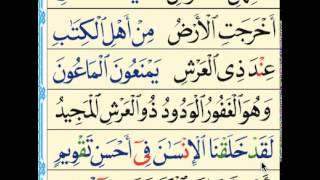 أَخْرَجَتِ ٱلْأَرْضُ مِنْ أَهْلِ ٱلْكِتَٰبِ
عِندَ ذِى ٱلْعَرْشِ يَمْنَعُونَ ٱلْمَاعُونَ
وَهُوَ ٱلْغَفُورُ ٱلْوَدُودُ ذُو ٱلْعَرْشِ ٱلْمَجِيدُ
لَقَدْ خَلَقْنَا ٱلْإِنسَٰنَ فِىٓ أَحْسَنِ تَقْوِيمٍ